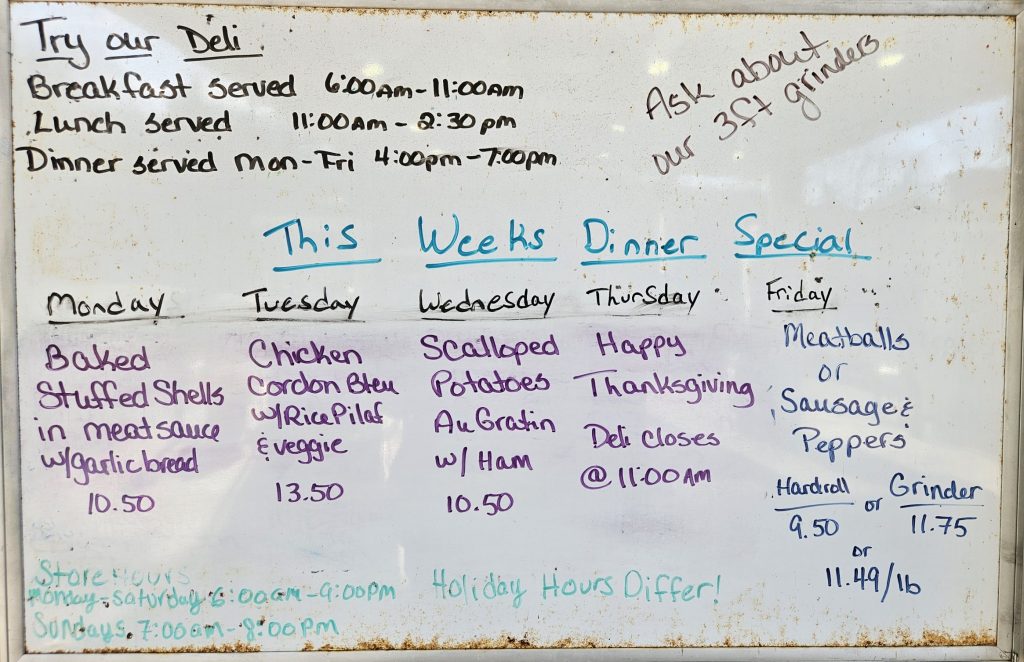 Try our Deli.
Breakfast served 6:00AM-11:00AM
Lunch served 11:00AM - 2:30pm
Dinner served mon-Fri 4:00pm-7:00pm
Ask about
our 3ft grinders
This Weeks Dinner Special
Monday
Baked
Stuffed Shells
in meat sauce
w/garlic bread
10.50
Tuesday
Chicken
Cordon Bleu
w/Rice Pilaf
& veggie
13.50
Wednesday
Scalloped
Potatoes
Au Gratin
w/ Ham
10.50
Thursday
Happy
Thanksgiving
Deli closes
@ 11:00AM
Friday
Meatballs
or
Sausage &
Peppers
Hardroll or Grinder
9.50 11.75
or
11.49/lb
Store Hours
Monday-Saturday 6:00am-9:00pm
Sundays 7:00am-8:00pm
Holiday Hours Differ!